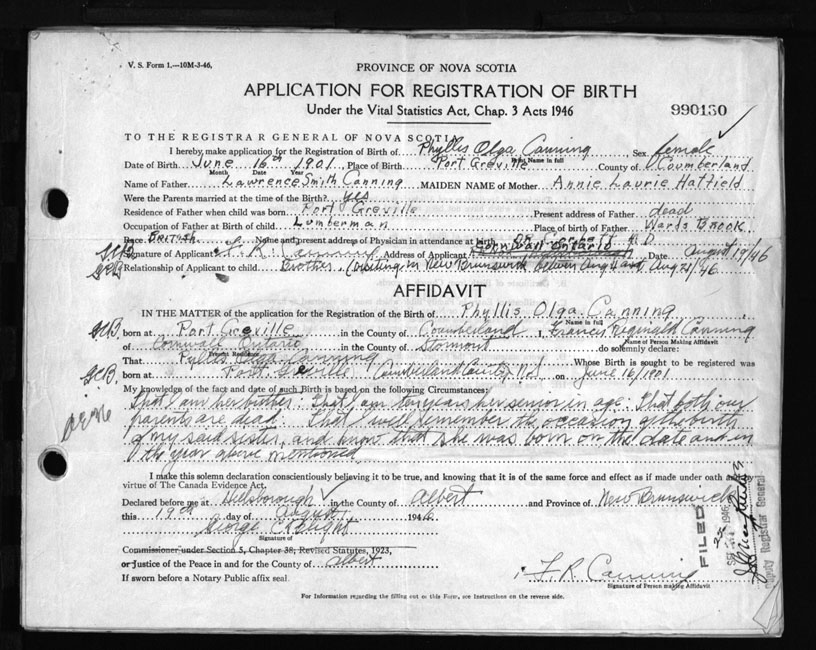 V. S. Form 1.—10M-3-46.
PROVINCE OF NOVA SCOTIA
APPLICATION FOR REGISTRATION OF BIRTH
Under the Vital Statistics Act, Chap. 3 Acts 1946
990130
TO THE REGISTRAR GENERAL OF NOVA SCOTIA
I hereby make application for the Registration of Birth of Phyllis Olga Canning Sex female
Print Name in full
Date of Birth June 16th 1901 Place of Birth Port Greville County of Coumberland
Month Date Year
Name of Father Lawrence Smith Canning MAIDEN NAME of Mother Annie Laurie Hatfield
Were the Parents married at the time of the Birth? yes
Residence of Father when child was born Port Greville Present address of Father dead
Occupation of Father at Birth of child Lumberman Place of birth of Father Wards Brook
Race British Name and present address of Physician in attendance at birth
Signature of Applicant F. R. Canning Address of Applicant Cornwall Ontario Date August 19/46
Relationship of Applicant to child Brother (visiting in New Brunswick between Aug 4 and Aug 21/46
AFFIDAVIT
IN THE MATTER of the application for the Registration of the Birth of Phyllis Olga Canning
Name in full
GCB born at Port Greville in the County of Coumberland I, Francis Reginald Canning
Name of Person Making Affidavit
of Cornwall Ontario in the County of Stormont do solemnly declare:
Present Residence
That Phyllis Olga Canning Whose Birth is sought to be registered was
GCB born at Port Greville Cumberland County N.S. on June 16/1901
My knowledge of the fact and date of such Birth is based on the following Circumstances:
That I am her brother: That I am ten years her senior in age: That both our
parents are dead: That I well remember the occasion of the birth
of my said sister, and know that she was born on the date and in
the year above mentioned
I make this solemn declaration conscientiously believing it to be true, and knowing that it is of the same force and effect as if made under oath and
virtue of The Canada Evidence Act.
Declared before me at Hillsborough in the County of Albert and Province of New Brunswick
this 19th day of August 1946
George
Signature of
Commissioner under Section 5, Chapter 38, Revised Statutes, 1923,
or Justice of the Peace in and for the County of Albert
If sworn before a Notary Public affix seal.
F R Canning
Signature of Person making Affidavit
FILED
1946
Deputy Registrar General
For Information regarding the filling out of this Form, see Instructions on the reverse side.